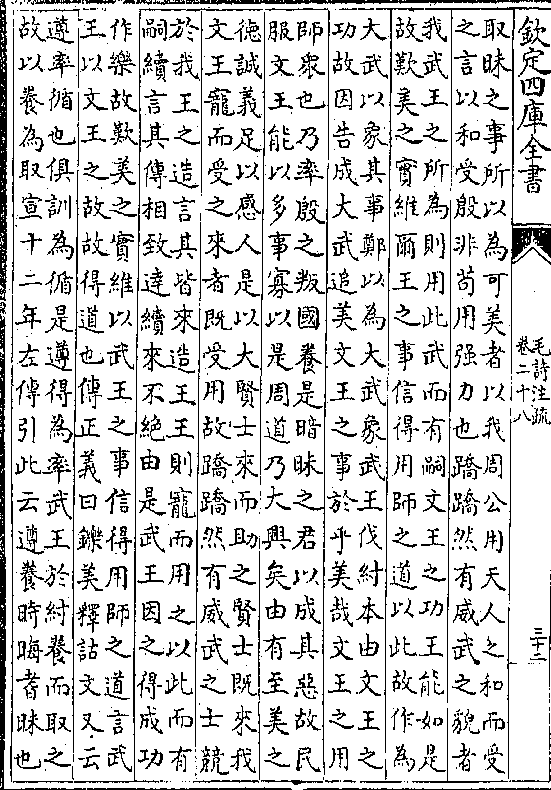 欽定四庫全書
毛詩注疏
卷二十八
三十二
取昧之事所以為可美者以我周公用天人之和而受
之言以和受殷非苟用强力也蹻蹻然有威武之貌者
我武王之所為則用此武而有嗣文王之功王能如是
故歎美之實維爾王之事信得用師之道以此故作為
大武以象其事鄭以為大武象武王伐紂本由文王之
功故因告成大武追美文王之事於乎美哉文王之用
師衆也乃率殷之叛國養是暗昧之君以成其惡故民
服文王能以多事寡以是周道乃大興矣由有至美之
德誠義足以感人是以大賢士來而助之賢士既來我
文王寵而受之來者既受用故蹻蹻然有威武之士競
於我王之造言其皆來造王王則寵而用之以此而有
嗣續言其傳相致達續來不絕由是武王因之得成功
作樂故歎美之實維以武王之事信得用師之道言武
王以文王之故故得道也傳正義曰鑠美釋詁文又云
遵率循也俱訓為循是遵得為率武王於紂養而取之
故以養為取宣十二年左傳引此云遵養時晦耆昧也